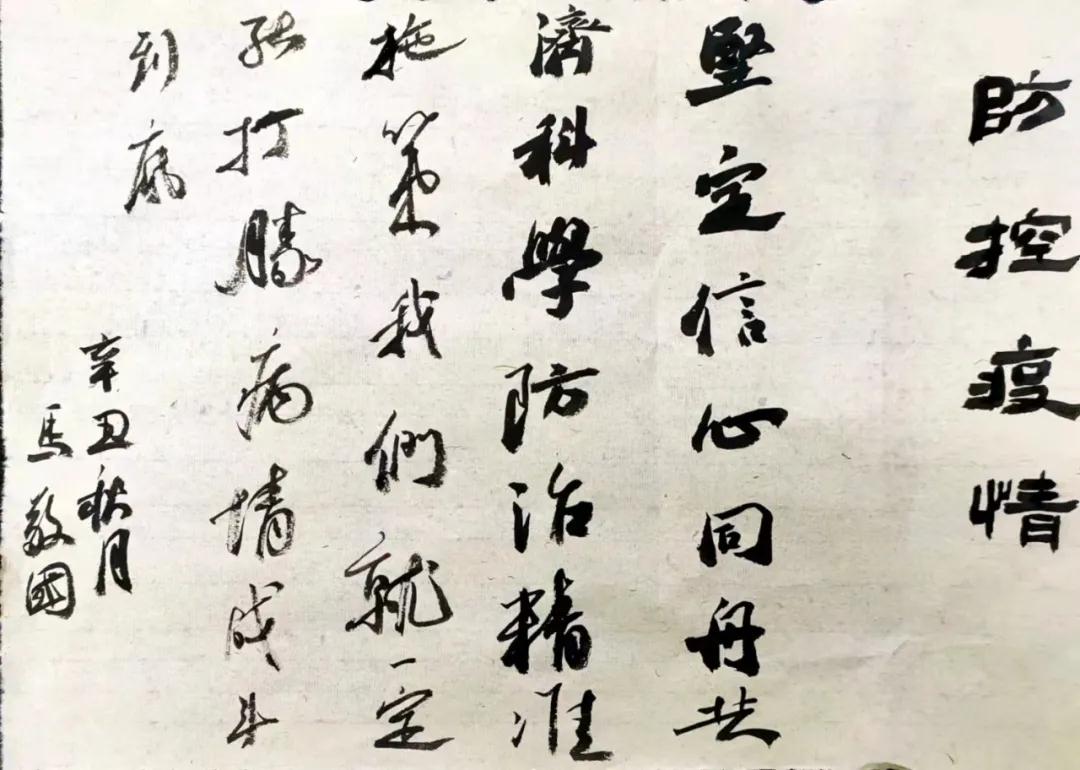 防控疫情
堅定信心同舟共
濟科學防治精准
施策我們就一定
能打勝病情斗
到
辛丑秋月
馬敬國